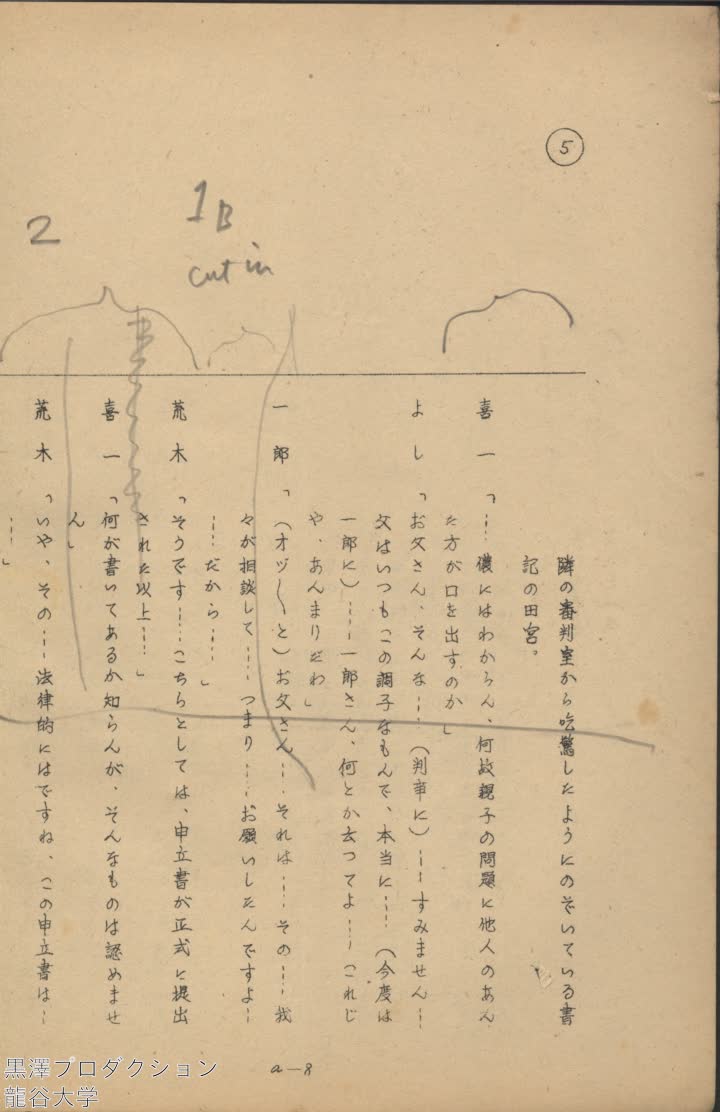 5
1B
cut in
2
隣の審判室から吃驚したようにのぞいている書
記の田宮。
喜一「……儂にはわからん、何故親子の問題に他人のあん
た方が口を出すのか」
よし「お父さん、そんな……(判事に)……すみません……
父はいつもこの調子なもんで、本当に……(今度は
一郎に)……一郎さん、何とか云つてよ……これじ
や、あんまりだわ」
一郎「(オヅ〱と)お父さん……それは……その……我
々が相談して……つまり……お願いしたんですよ……
……だから……」
荒木「そうです……こちらとしては、申立書が正式に提出
された以上……」
喜一「何が書いてあるか知らんが、そんなものは認めませ
ん」
荒木「いや、その……法律的にはですね、この申立書は……
……」
a—8
黒澤プロダクション
龍谷大学